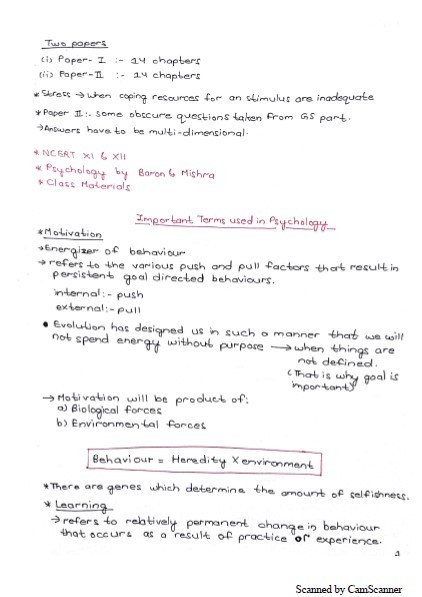 Two papers
(i) Paper- I :- 14 chapters
(ii) Paper-II :- 14 chapters
* Stress → when coping resources for an stimulus are inadequate
* Paper II:- some obscure questions taken from GS part.
→ Answers have to be multi-dimensional.
* NCERT XI & XII
* Psychology by Baron & Mishra
* Class Materials
Important Terms used in Psychology
* Motivation
→ Energizer of behaviour
→ refers to the various push and pull factors that result in
persistent goal directed behaviours.
internal:- push
external:- pull
• Evolution has designed us in such a manner that we will
not spend energy without purpose → when things are
not defined.
(That is why goal is
important)
→ Motivation will be product of:
a) Biological forces
b) Environmental forces
Behaviour = Heredity X environment
* There are genes which determine the amount of selfishness.
* Learning
→ refers to relatively permanent change in behaviour
that occurs as a result of practice or experience.
1
Scanned by CamScanner